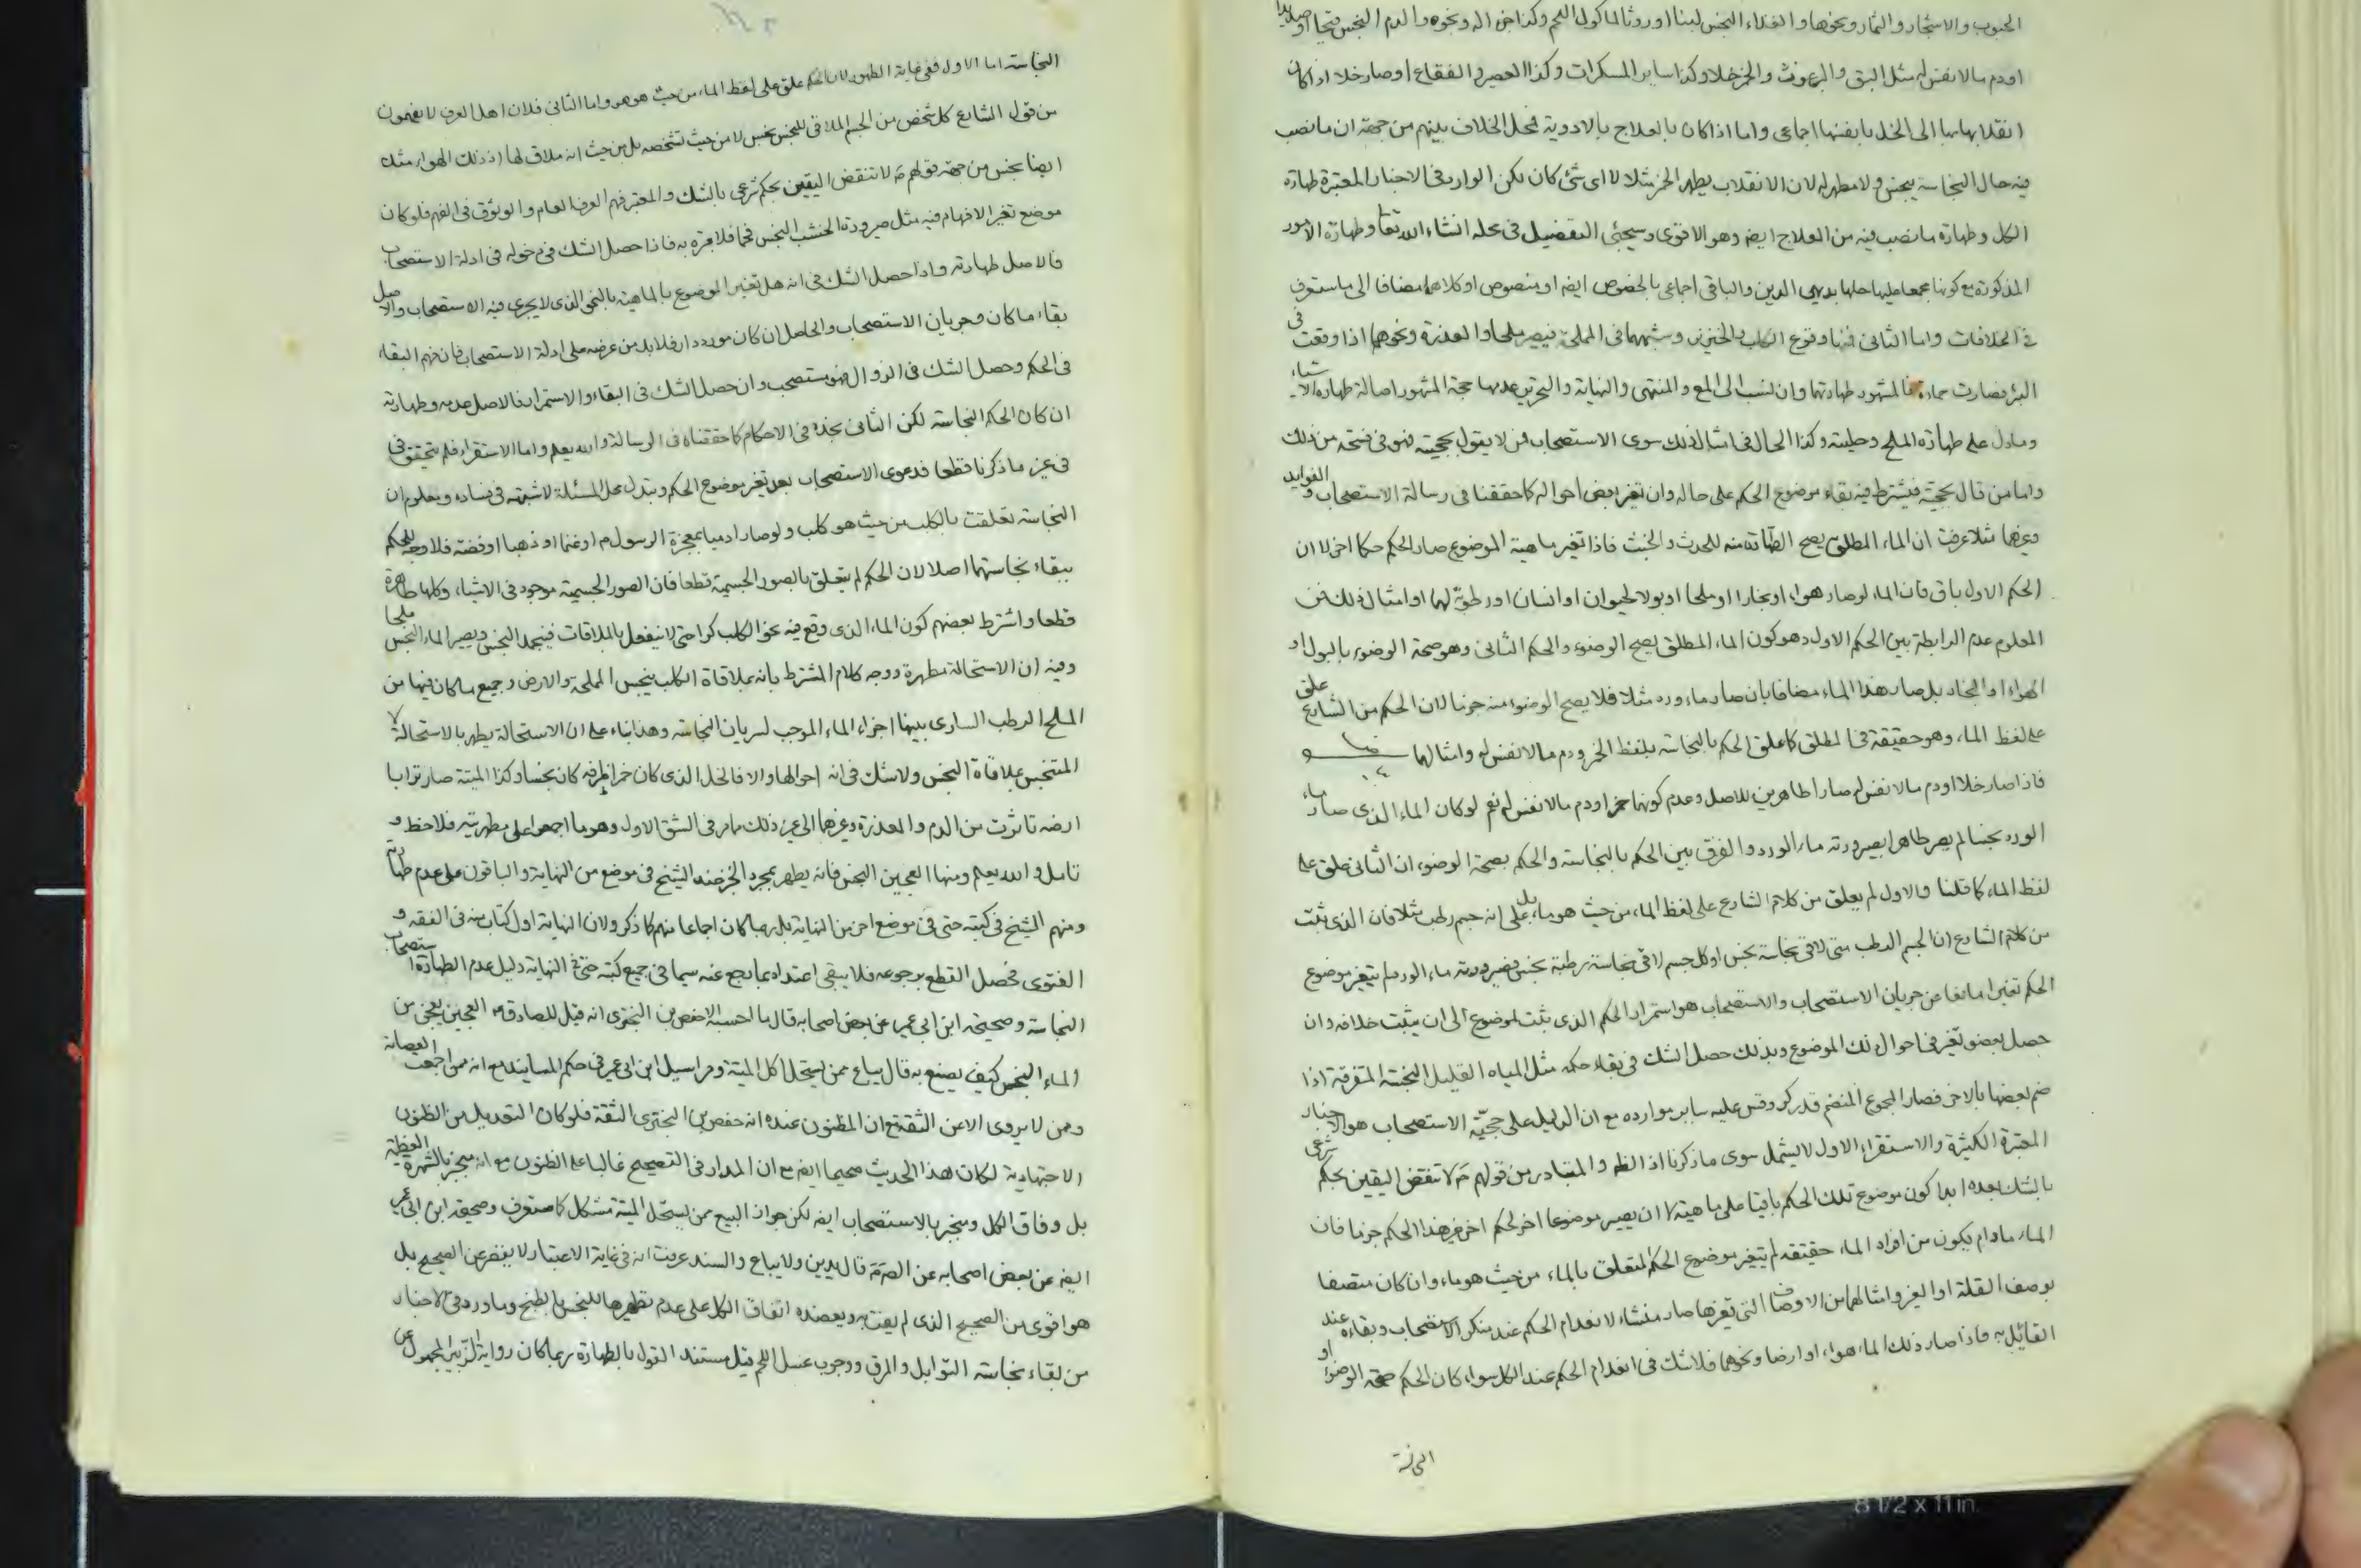 الحبوب والاشجار والثمار ونحوها والغذاء النجس لبنا او روثا لماكول اللحم وكذا جزاله ونحوه والدم النجس قيحا او صديدا
او دم ما لا نفس له مثل البق والبرغوث والخمر خلا وكذا ساير المسكرات وكذا العصير والفقاع اذا صار خلا اذا كان
انقلابها الى الخل بانفسها اجماعى واما اذا كان بالعلاج بالادوية فمحل الخلاف بينهم من جهة ان ما نصب
فيه حال النجاسة ينجس ولا مطهر له لان الانقلاب يطهر الخمر مثلا لا اى شئ كان لكن الوارد فى الاخبار المعتبرة طهارة
الكل وطهارة ما نصب فيه من العلاج ايضه وهو الاقوى وسيجئى التفصيل فى محله انشاء الله تعا وطهارة الامور
المذكورة مع كونها مجمعا عليها جلها بديهى الدين والباقى اجماعى بالخصوص ايضه او منصوص او كلاهما مضافا الى ما ستعرف
فى الخلافات واما الثانى فمنها وقوع الكلب والخنزير وشبههما فى المملحة فيصير ملحا والعذرة ونحوهما اذا وقعت فى
البئر فصارت حماة فالمشهور طهارتها وان نسب الى المع والمنتهى والنهاية والتحرير عدمها حجة المشهور اصالة طهارة الاشياء
وما دل على طهارة الملح وحليته وكذا الحال فى امثال ذلك سوى الاستصحاب فمن لا يقول بحجيته فهو فى فسحة من ذلك
واما من قال بحجيته فيشترط فيه بقاء موضوع الحكم على حاله وان تغير بعض احواله كما حققنا فى رسالة الاستصحاب والفوايد
وغيرها مثلا عرفت ان الماء المطلق يصح الطهارة منه للحدث والخبث فاذا تغير ماهية الموضوع صار الحكم حكما اخر لا ان
الحكم الاول باق فان الماء لو صار هواء او بخارا او ملحا او بولا لحيوان او انسان او رطوبة لهما او امثال ذلك فمن
المعلوم عدم الرابطة بين الحكم الاول وهو كون الماء المطلق يصح الوضوء والحكم الثانى وهو صحة الوضوء بالبول او
الهواء او البخار بل صار هذا الماء مضافا بان صار ماء ورد مثلا فلا يصح الوضوء منه جزما لان الحكم من الشارع علق
على لفظ الماء وهو حقيقة فى المطلق كما علق الحكم بالنجاسة بلفظ الخمر ودم ما لا نفس له وامثالهما
فاذا صار خلا او دم ما لا نفس له صارا طاهرين للاصل وعدم كونهما خمرا ودم ما لا نفس له نعم لو كان الماء الذى صار ماء
الورد نجسا لم يصر طاهرا بصيرورته ماء الورد والفرق بين الحكم بالنجاسة والحكم بصحة الوضوء ان الثانى علق على
لفظ الماء كما قلنا والاول لم يعلق من كلام الشارع على لفظ الماء من حيث هو ماء بل على انه جسم رطب مثلا فان الذى ثبت
من كلام الشارع ان الجسم الرطب متى لاقى نجاسة نجس او كل جسم لاقى نجاسة برطبة نجس فصيرورته ماء الورد لم يتغير موضوع
الحكم تغيرا مانعا عن جريان الاستصحاب والاستصحاب هو استمرار الحكم الذى ثبت لموضوع الى ان يثبت خلافه وان
حصل بعض تغير فى احوال ذلك الموضوع وبذلك حصل الشك فى بقاء حكمه مثل المياه القليل النجسة المتفرقة اذا
ضم بعضها بالاخر فصار المجموع المنضم قدر كر وقس عليه ساير موارده مع ان الدليل على حجية الاستصحاب هو الاخبار
المعتبرة الكثيرة والاستقراء الاول لا يشمل سوى ما ذكرنا اذ الظه والمتبادر من قولهم ع لا تنقض اليقين بحكم شرعى
بالشك بعده ابدا كون موضوع تلك الحكم باقيا على ماهيته لا ان يصير موضوعا اخر لحكم اخر غير هذا الحكم جزما فان
الماء ما دام يكون من افراد الماء حقيقة لم يتغير موضوع الحكم المتعلق بالماء من حيث هو ماء وان كان متصفا
بوصف القلة او الغير وامثالهما من الاوصاف التى تغيرها صار منشاء لانعدام الحكم عند منكر الاستصحاب وبقاءه عند
القائل به فاذا صار ذلك الماء هواء او ارضا ونحوهما فلا شك فى انعدام الحكم عند الكل سواء كان الحكم صحة الوضوء او
النجاسة
النجاسة اما الاول ففى غاية الظهور لان الحكم علق على لفظ الماء من حيث هو هو واما الثانى فلان اهل العرف لا يفهمون
من قول الشارع كل شخص من الجسم الملاقى للنجس نجس لا من حيث تشخصه بل من حيث انه ملاق لها ان ذلك الهواء مثلا
ايضا نجس من جهة قولهم ع لا تنقض اليقين بحكم شرعى بالشك والمعتبر فهم العرف العام والوثوق فى الفهم فلو كان
موضع تغير الافهام فيه مثل صيرورة الخشب النجس فحما فلا عبرة به فاذا حصل الشك فى دخوله فى ادلة الاستصحاب
فالاصل طهارته واذا حصل الشك فى انه هل تغير الموضوع بالماهية بالنحو الذى لا يجرى فيه الاستصحاب والاصل
بقاء ما كان وجريان الاستصحاب والحاصل ان كان مورد ارفلا بد من عرضه على ادلة الاستصحاب فان فهم البقاء
فى الحكم وحصل الشك فى الزوال فهو مستصحب وان حصل الشك فى البقاء والاستمرار فالاصل عدمه وطهارته
ان كان الحكم النجاسة لكن الثانى نجده فى الاحكام كما حققناه فى الرسالة والله يعلم واما الاستقراء فلم يتحقق فى
فى غير ما ذكرنا قطعا فدعوى الاستصحاب بعد تغير موضوع الحكم وتبدل محل المسئلة لا شبهة فى فساده ومعلوم ان
النجاسة تعلقت بالكلب من حيث هو كلب ولو صار ادميا بمعجزة الرسول ص او غنما او ذهبا او فضة فلا وجه للحكم
ببقاء نجاستهما اصلا لان الحكم لم يتعلق بالصور الجسمية قطعا فان الصور الجسمية موجود فى الاشياء وكلها طاهرة
قطعا واشترط بعضهم كون الماء الذى وقع فيه نحو الكلب كرا حتى لا ينفعل بالملاقات فينجمد النجس ويصير الماء النجس ملحا
وفيه ان الاستحالة مطهرة ووجه كلام المشترط بانه بملاقاة الكلب ينجس المملحة والارض وجميع ما كان فيها من
الملح الرطب السارى بينها اجزاء الماء الموجب لسريان النجاسة وهذا بناء على ان الاستحالة يطهر بالاستحالة لا
المتنجس بملاقاة النجس ولا شك فى انه احوالها والا فالخل الذى كان خمرا ظرفه كان نجسا وكذا الميتة صار ترابا
ارضه تاثرت من الدم والعذرة وغيرهما الى غير ذلك مما مر فى الشق الاول وهو ما اجمعوا على مطهريته فلاحظ و
تامل والله يعلم ومنها العجين النجس فانه يطهر بمجرد الخبز عند الشيخ فى موضع من النهاية والباقون على عدم طهارته
ومنهم الشيخ فى كتبه حتى فى موضع اخر من النهاية بل ربما كان اجماعا منهم كما ذكر ولان النهاية اول كتاب منه فى الفقه و
الفتوى فحصل القطع برجوعه فلا يبقى اعتداد بما رجع عنه سيما فى جميع كتبه حتى فى النهاية دليل عدم الطهارة استصحاب
النجاسة وصحيحة ابن ابى عمير عن بعض اصحابه قال ما احسبه الا حفص بن البخترى انه قيل للصادق ع العجين يعجن من
الماء النجس كيف يصنع به قال يباع ممن يستحل اكل الميتة ومراسيل ابن ابى عمير فى حكم المسانيد مع انه ممن اجمعت العصابة
وممن لا يروى الا عن الثقة مع ان المظنون عنده انه حفص بن البخترى الثقة فلو كان التعديل من الظنون
الاجتهادية لكان هذا الحديث صحيحا ايضه مع ان المدار فى التصحيح غالبا على الظنون مع انه منجبر بالشهرة العظيمة
بل وفاق الكل ومنجبر بالاستصحاب ايضه لكن جواز البيع ممن يستحل الميتة مشكل كما ستعرف وصحيحة ابن ابى عمير
ايضه عن بعض اصحابه عن الصه ع قال يدفن ولا يباع والسند عرفت انه فى غاية الاعتبار لا يقصر عن الصحيح بل
هو اقوى من الصحيح الذى لم يفت به ويعضده اتفاق الكل على عدم تطهيرها للنجس بالطبخ وما ورد فى الاخبار
من بقاء نجاسة التوابل والمرق ووجوب غسل اللحم قيل مستند القول بالطهارة ربما كان رواية الزبير المجهول عن
8 1/2 x 11 in.